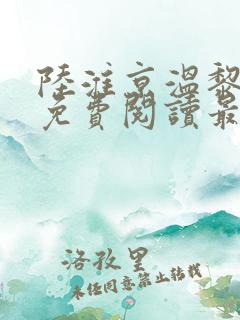 陸淮京溫黎
免費閱讀最
洛孜里
未经同意禁止转载